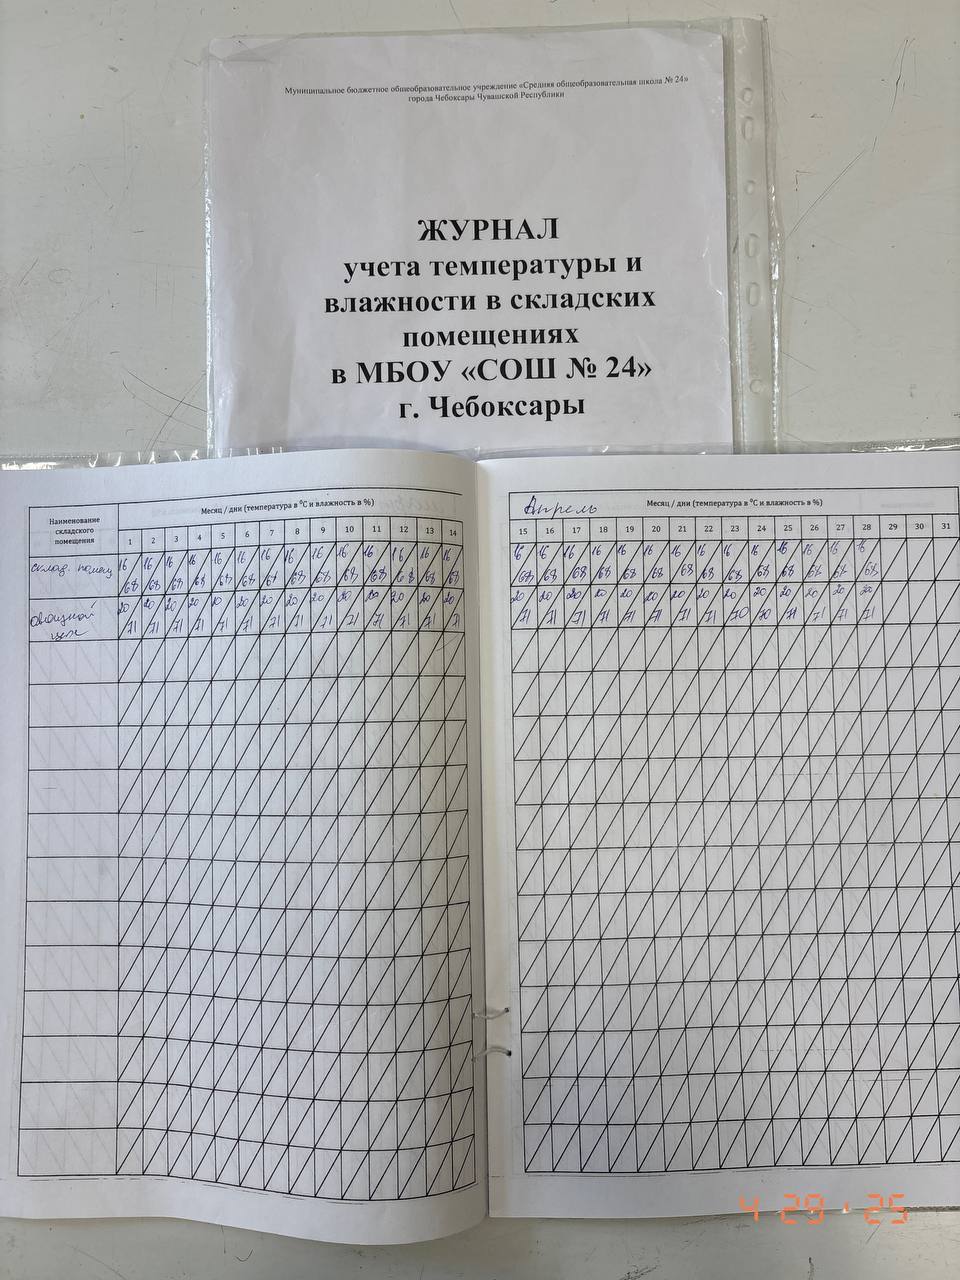 Муниципальное бюджетное общеобразовательное учреждение «Средняя общеобразовательная школа № 24»
города Чебоксары Чувашской Республики
ЖУРНАЛ
учета температуры и
влажности в складских
помещениях
в МБОУ «СОШ № 24»
г. Чебоксары
Наименование
складского
помещения
Месяц / дни (температура в ⁰С и влажность в %)
1 2 3 4 5 6 7 8 9 10 11 12 13 14
склад. помещ
16 16 16 16 16 16 16 16 16 16 16 16 16 16
68 68 68 68 68 68 68 68 68 68 68 68 68 68
Овощной
цех
20 20 20 20 20 20 20 20 20 20 20 20 20 20
71 71 71 71 71 71 71 71 71 71 71 71 71 71
Апрель
Месяц / дни (температура в ⁰С и влажность в %)
15 16 17 18 19 20 21 22 23 24 25 26 27 28 29 30 31
16 16 16 16 16 16 16 16 16 16 16 16 16 16
68 68 68 68 68 68 68 68 68 68 68 68 68 68
20 20 20 20 20 20 20 20 20 20 20 20 20 20
71 71 71 71 71 71 71 71 70 70 71 71 71 71
4 29 '25